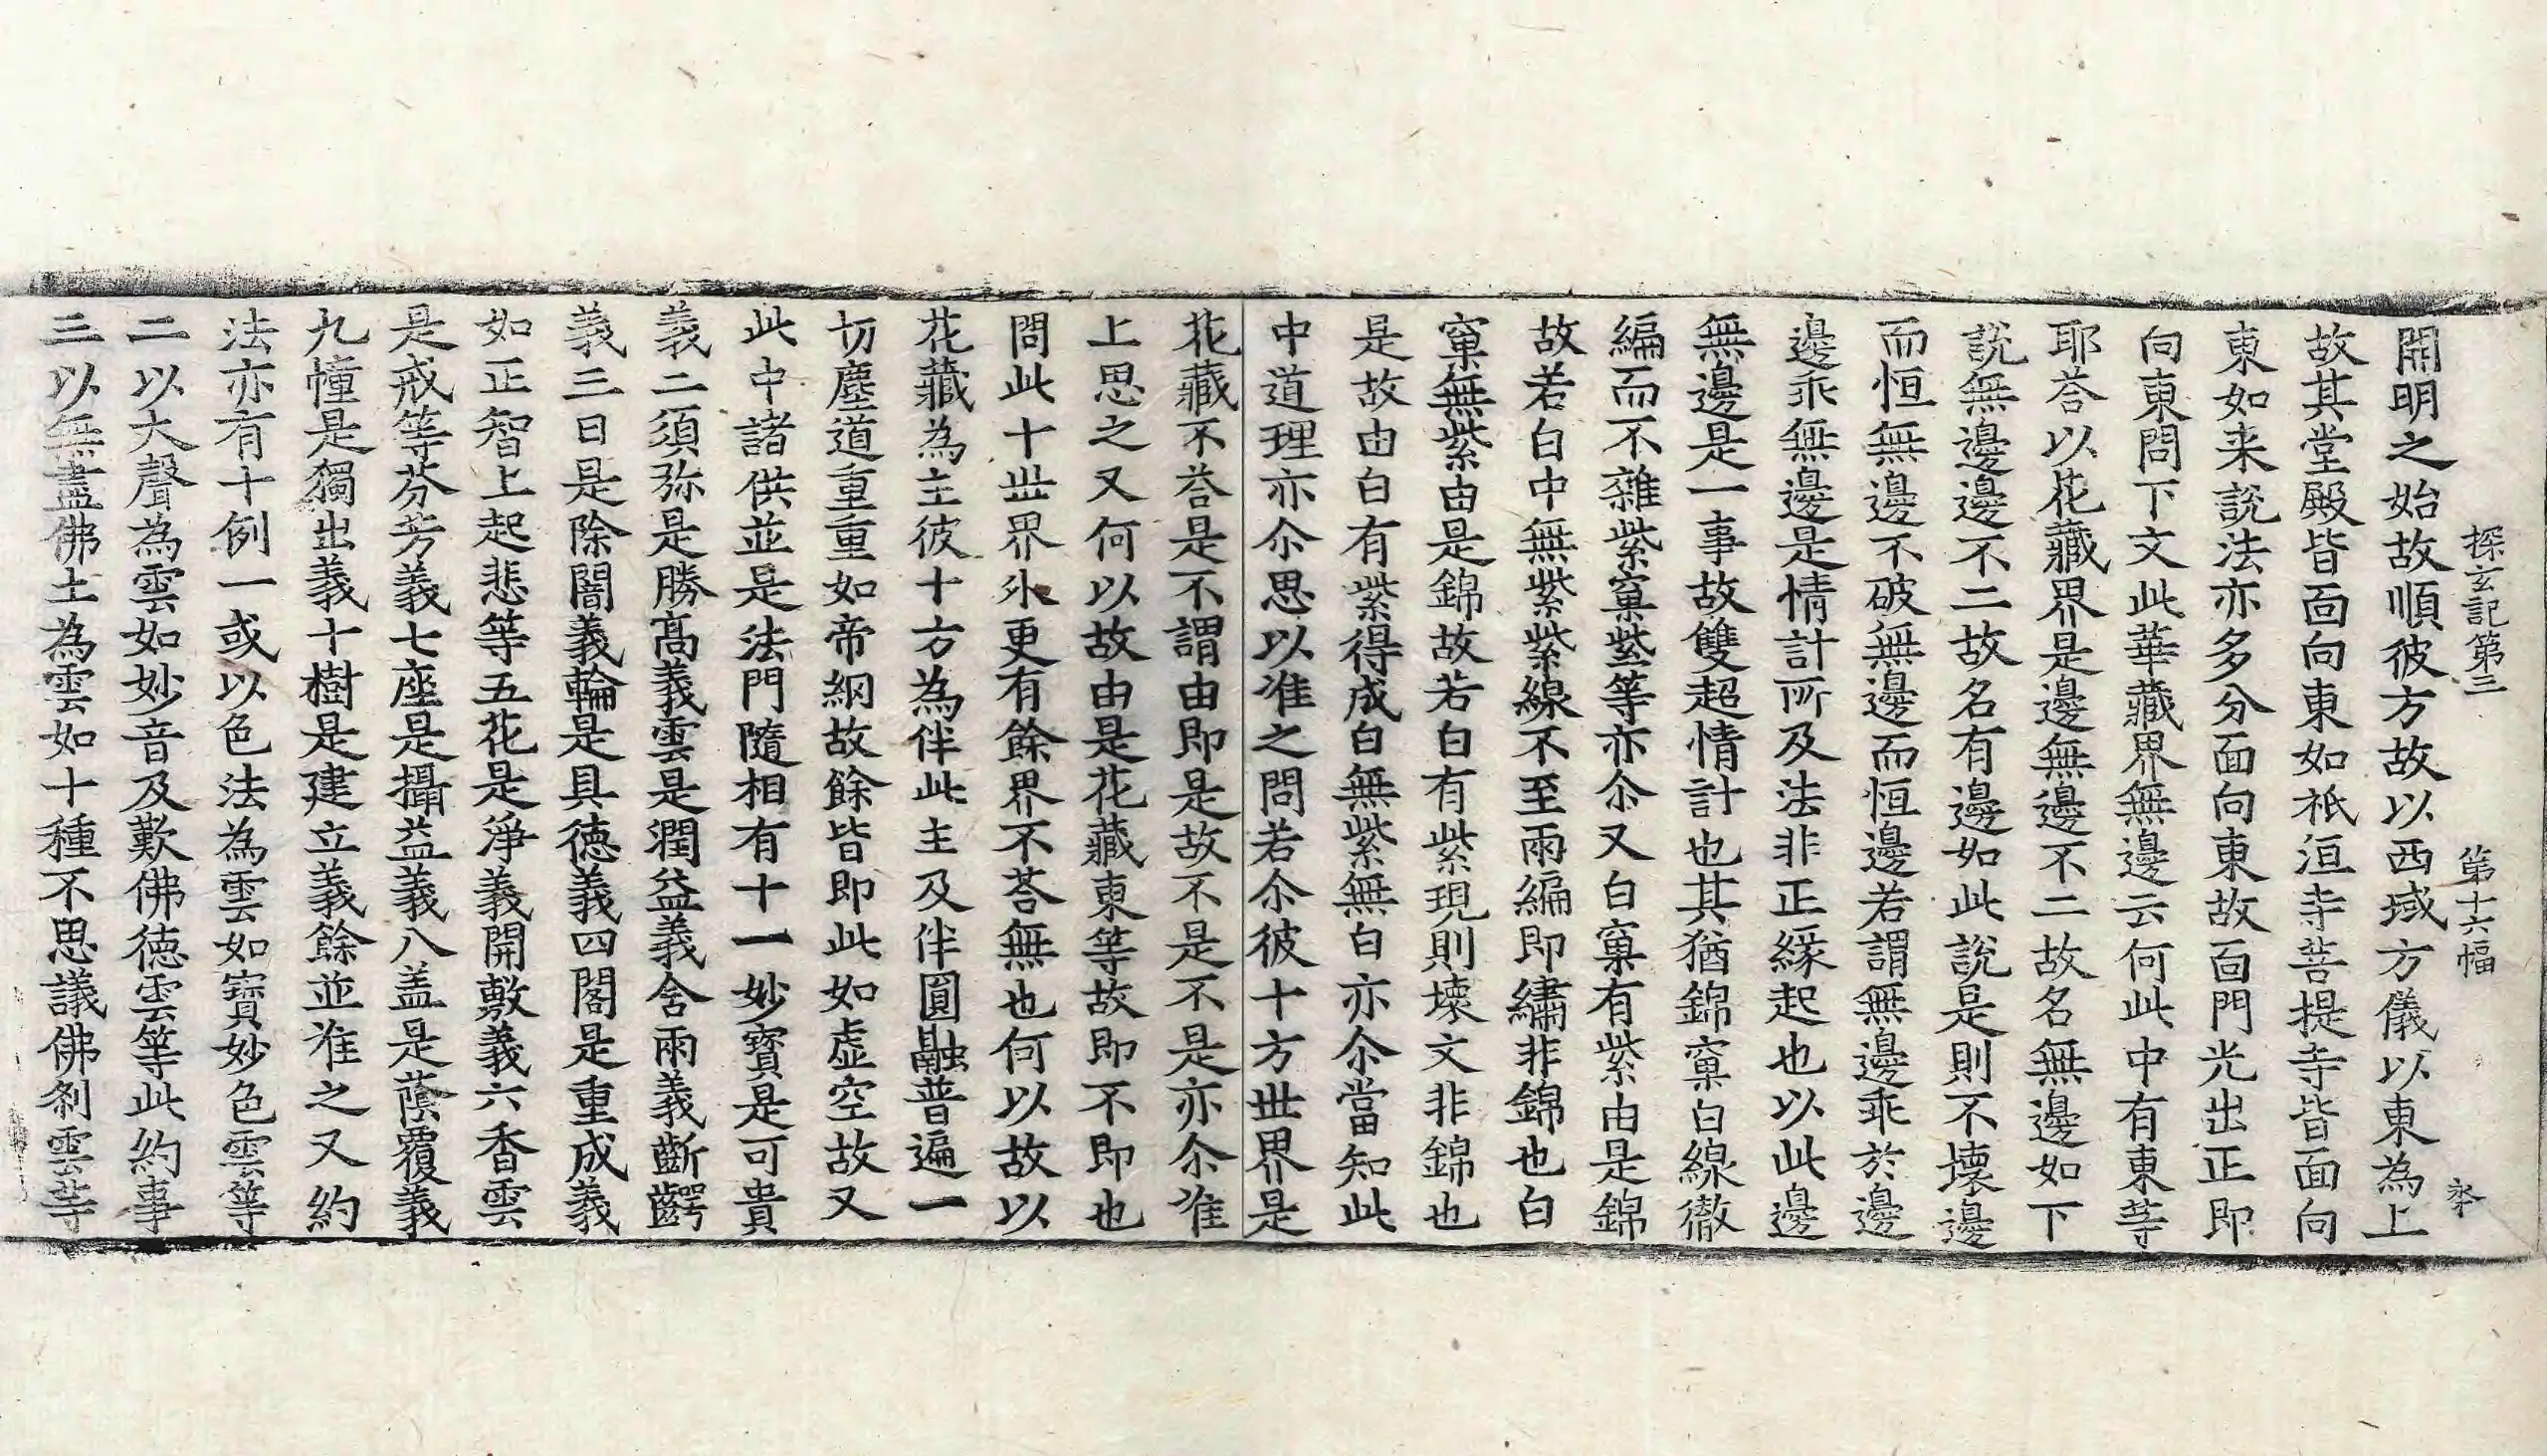 探玄記第三　第十六幅　永
開明之始故順彼方故以西域方儀以東為上
故其堂殿皆面向東如祇洹寺菩提寺皆面向
東如来說法亦多分面向東故面門光出正即
向東問下文此華藏界無邊云何此中有東等
耶荅以花藏界是邊無邊不二故名無邊如下
說無邊邊不二故名有邊如此說是則不壞邊
而恒無邊不破無邊而恒邊若謂無邊乖於邊
邊乖無邊是情計所及法非正緣起也以此邊
無邊是一事故雙超情計也其猶錦窠白線徹
編而不雜紫窠紫等亦尒又白窠有紫由是錦
故若白中無紫紫線不至兩編即繡非錦也白
窠無紫由是錦故若白有紫現則壞文非錦也
是故由白有紫得成白無紫無白亦尒當知此
中道理亦尒思以准之問若尒彼十方世界是
花藏不荅是不謂由即是故不是不是亦尒准
上思之又何以故由是花藏東等故即不即也
問此十世界外更有餘界不荅無也何以故以
花藏為主彼十方為伴此主及伴圓融普遍一
切塵道重重如帝網故餘皆即此如虛空故又
此中諸供並是法門隨相有十一妙寶是可貴
義二須弥是勝髙義雲是潤益義舍雨義斷齶
義三日是除闇義輪是具德義四閣是重成義
如正智上起悲等五花是淨義開敷義六香雲
是戒等芬芳義七座是攝益義八盖是蔭覆義
九幢是獨出義十樹是建立義餘並准之又約
法亦有十例一或以色法為雲如寶妙色雲等
二以大聲為雲如妙音及歎佛德雲等此約事
三以無盡佛土為雲如十種不思議佛刹雲等